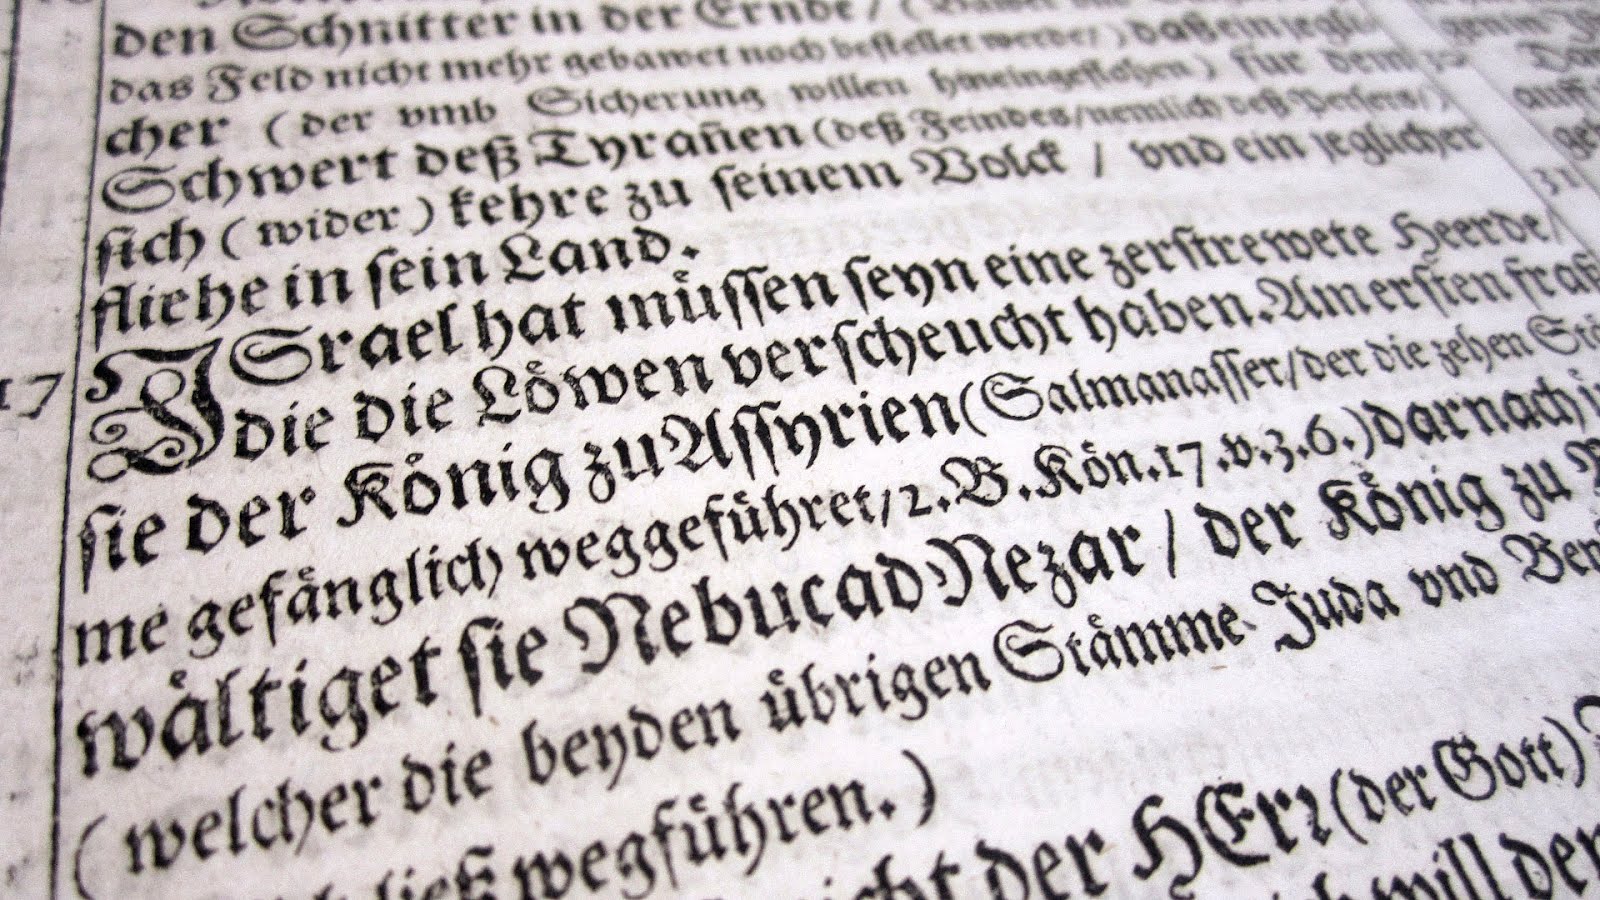 den Schnitter in der Ernde/
das Feld nicht mehr gebawet noch bestellet werde/) daß ein jegli-
cher (der vmb Sicherung willen hineingeflohen) für dem
Schwert deß Tyrañen (deß Feindes/nemlich deß Persers/)
sich (wider) kehre zu seinem Volck / vnd ein jeglicher
fliehe in sein Land.
17 ISrael hat müssen seyn eine zerstrewete Heerde/
die die Löwen verscheucht haben. Am ersten fraß
sie der König zu Assyrien (Salmanasser/der die zehen Stä
me gefänglich weggeführet/2.B.Kön.17.v.3.6.) darnach
wältiget sie NebucadNezar / der König zu
(welcher die beyden übrigen Stämme Juda vnd Ben
ließ wegführen.)
der HErr (der Gott)
will den
31